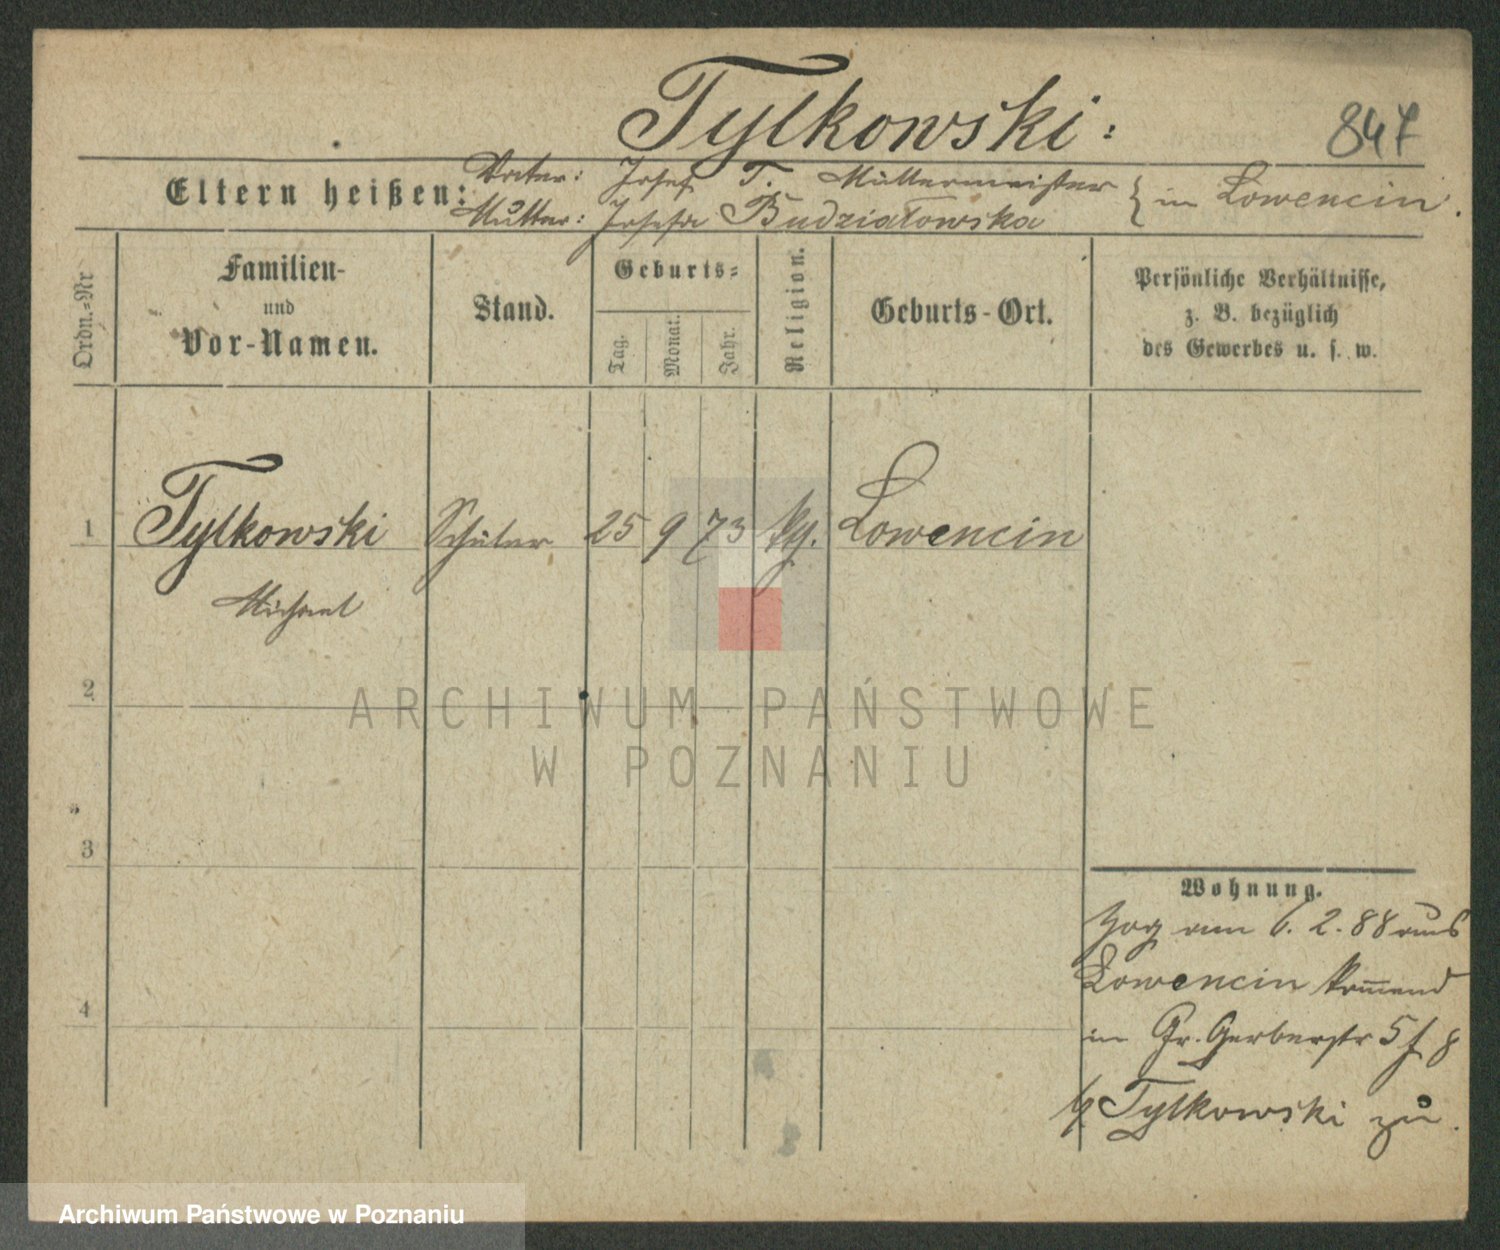 Tylkowski:
847
Eltern heißen:
Vater: Josef T. Müllermeister
Mutter: Josefa Budziałowska
} in Lowencin.
Ordn.-Nr
Familien-
und
Vor-Namen.
Stand.
Geburts-
Tag.
Monat.
Jahr.
Religion.
Geburts-Ort.
Persönliche Verhältnisse,
z. B. bezüglich
des Gewerbes u. s. w.
1 Tylkowski Schüler 25 9 73 Lowencin
Michael
2
3
4
Wohnung.
Zog am 6. 2. 88 aus
Lowencin kom̅end
in Gr. Gerberstr 5
Tylkowski zu.
ARCHIWUM PAŃSTWOWE
W POZNANIU
Archiwum Państwowe w Poznaniu